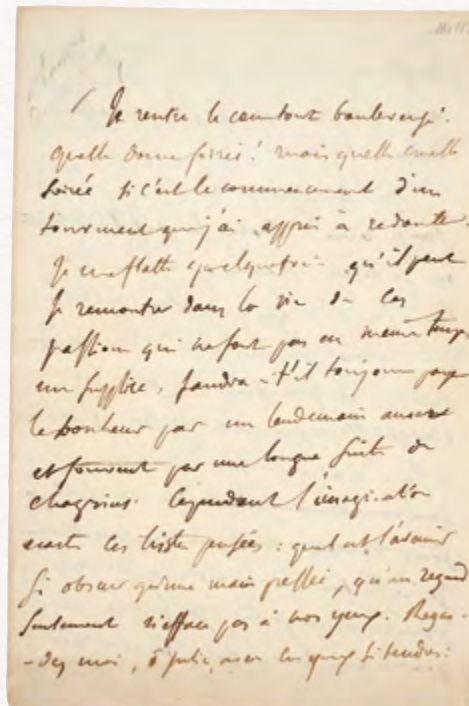 Je rentre le cœur tout bouleversé.
quelle douce soirée! mais quelle cruelle
soirée si c'est le commencement d'un
tourment que j'ai appris à redouter.
Je me flatte quelquefois qu'il peut
se rencontrer dans la vie de ces
passions qui ne font pas en même temps
un supplice. faudra-t'il toujours payer
le bonheur par un lendemain amer
et souvent par une longue suite de
chagrins. Cependant l'imagination
écarte ces tristes pensées: quel est l'avenir
si obscur qu'une main pressée, qu'un regard
seulement n'efface pas à nos yeux. Regar-
-dez moi, ô Julie, avec ces yeux si tendres: